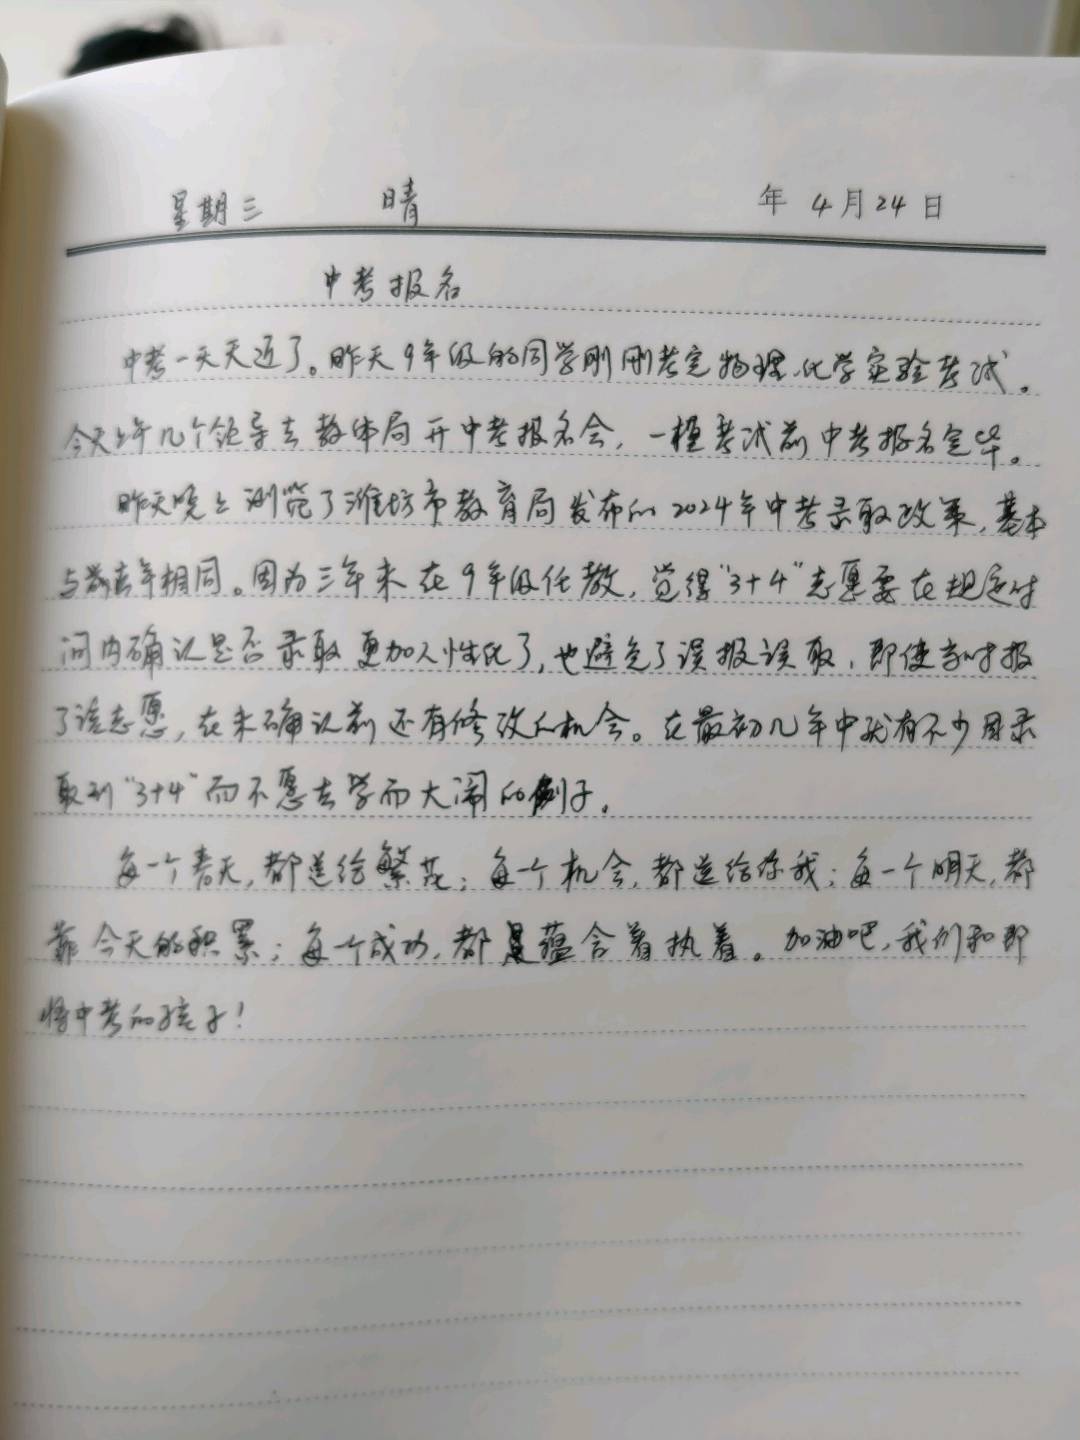 星期三 晴 年 4月24日
中考报名
中考一天天近了。昨天9年级的同学刚刚考完物理、化学实验考试。
今天上午几个领导去教体局开中考报名会,一模考试前中考报名完毕。
昨天晚上浏览了潍坊市教育局发布的2024年中考录取政策,基本
与前年相同。因为三年来在9年级任教,觉得"3+4"志愿要在规定时
间内确认是否录取更加人性化了,也避免了误报误取,即使当时报
了该志愿,在未确认前还有修改的机会。在最初几年中就有不少因录
取到"3+4"而不愿去学而大闹的例子。
每一个春天,都送给繁花;每一个机会,都送给你我;每一个明天,都
靠今天的积累;每一个成功,都是蕴含着执着。加油吧,我们和即
将中考的孩子!